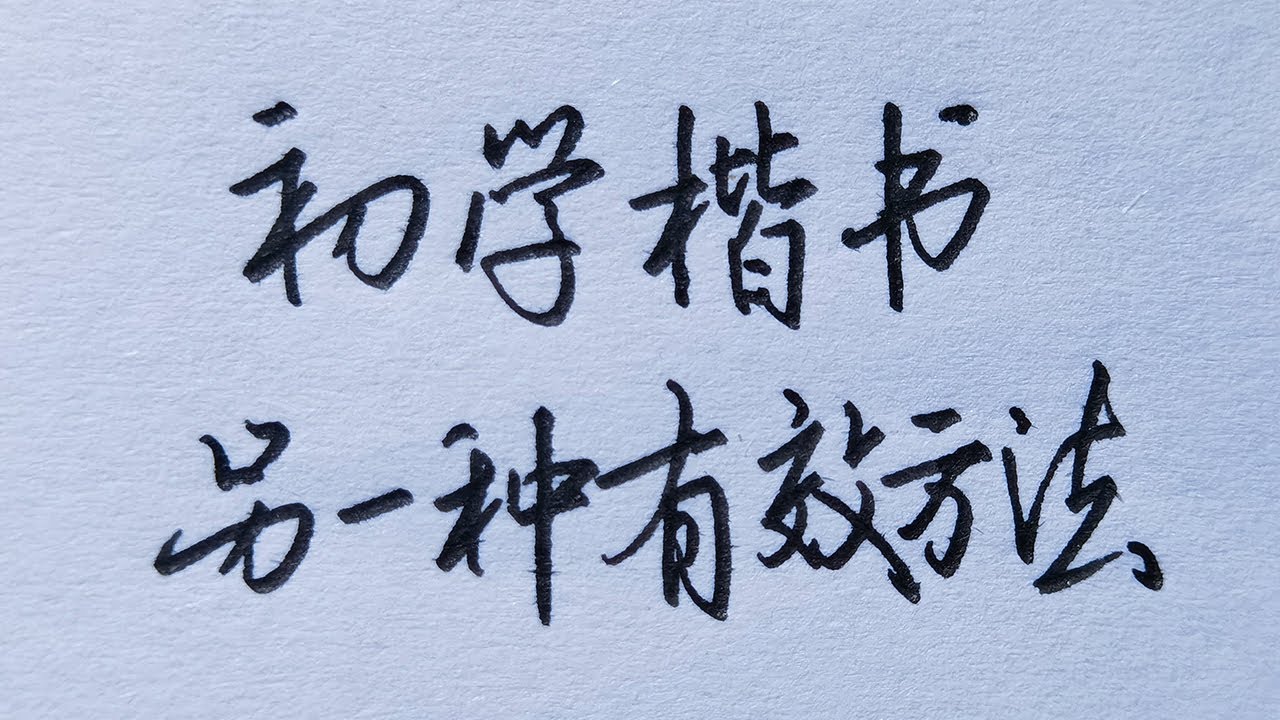 初学楷书
另一种有效方法